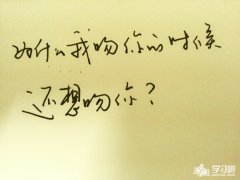 为什么我吻你的时候
还想吻你?
学习啦